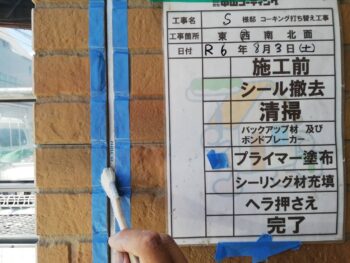 工事名 S 様邸 コーキング打ち替え工事
工事箇所 東 西 南 北面
日付 R6年8月3日(土)
施工前
シール撤去
清掃
バックアップ材 及び
ボンドブレーカー
プライマー塗布
シーリング材充填
ヘラ押さえ
完了